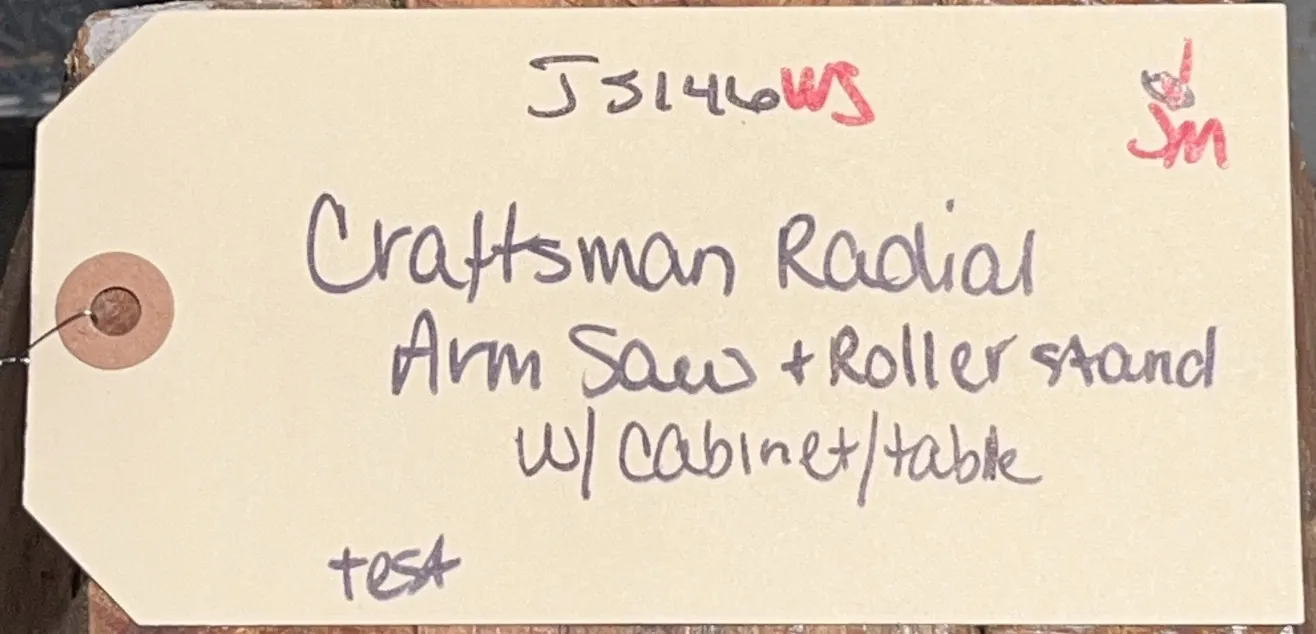 J5146WS
JM
Craftsman Radial
Arm Saw + Roller stand
w/ cabinet/table
test